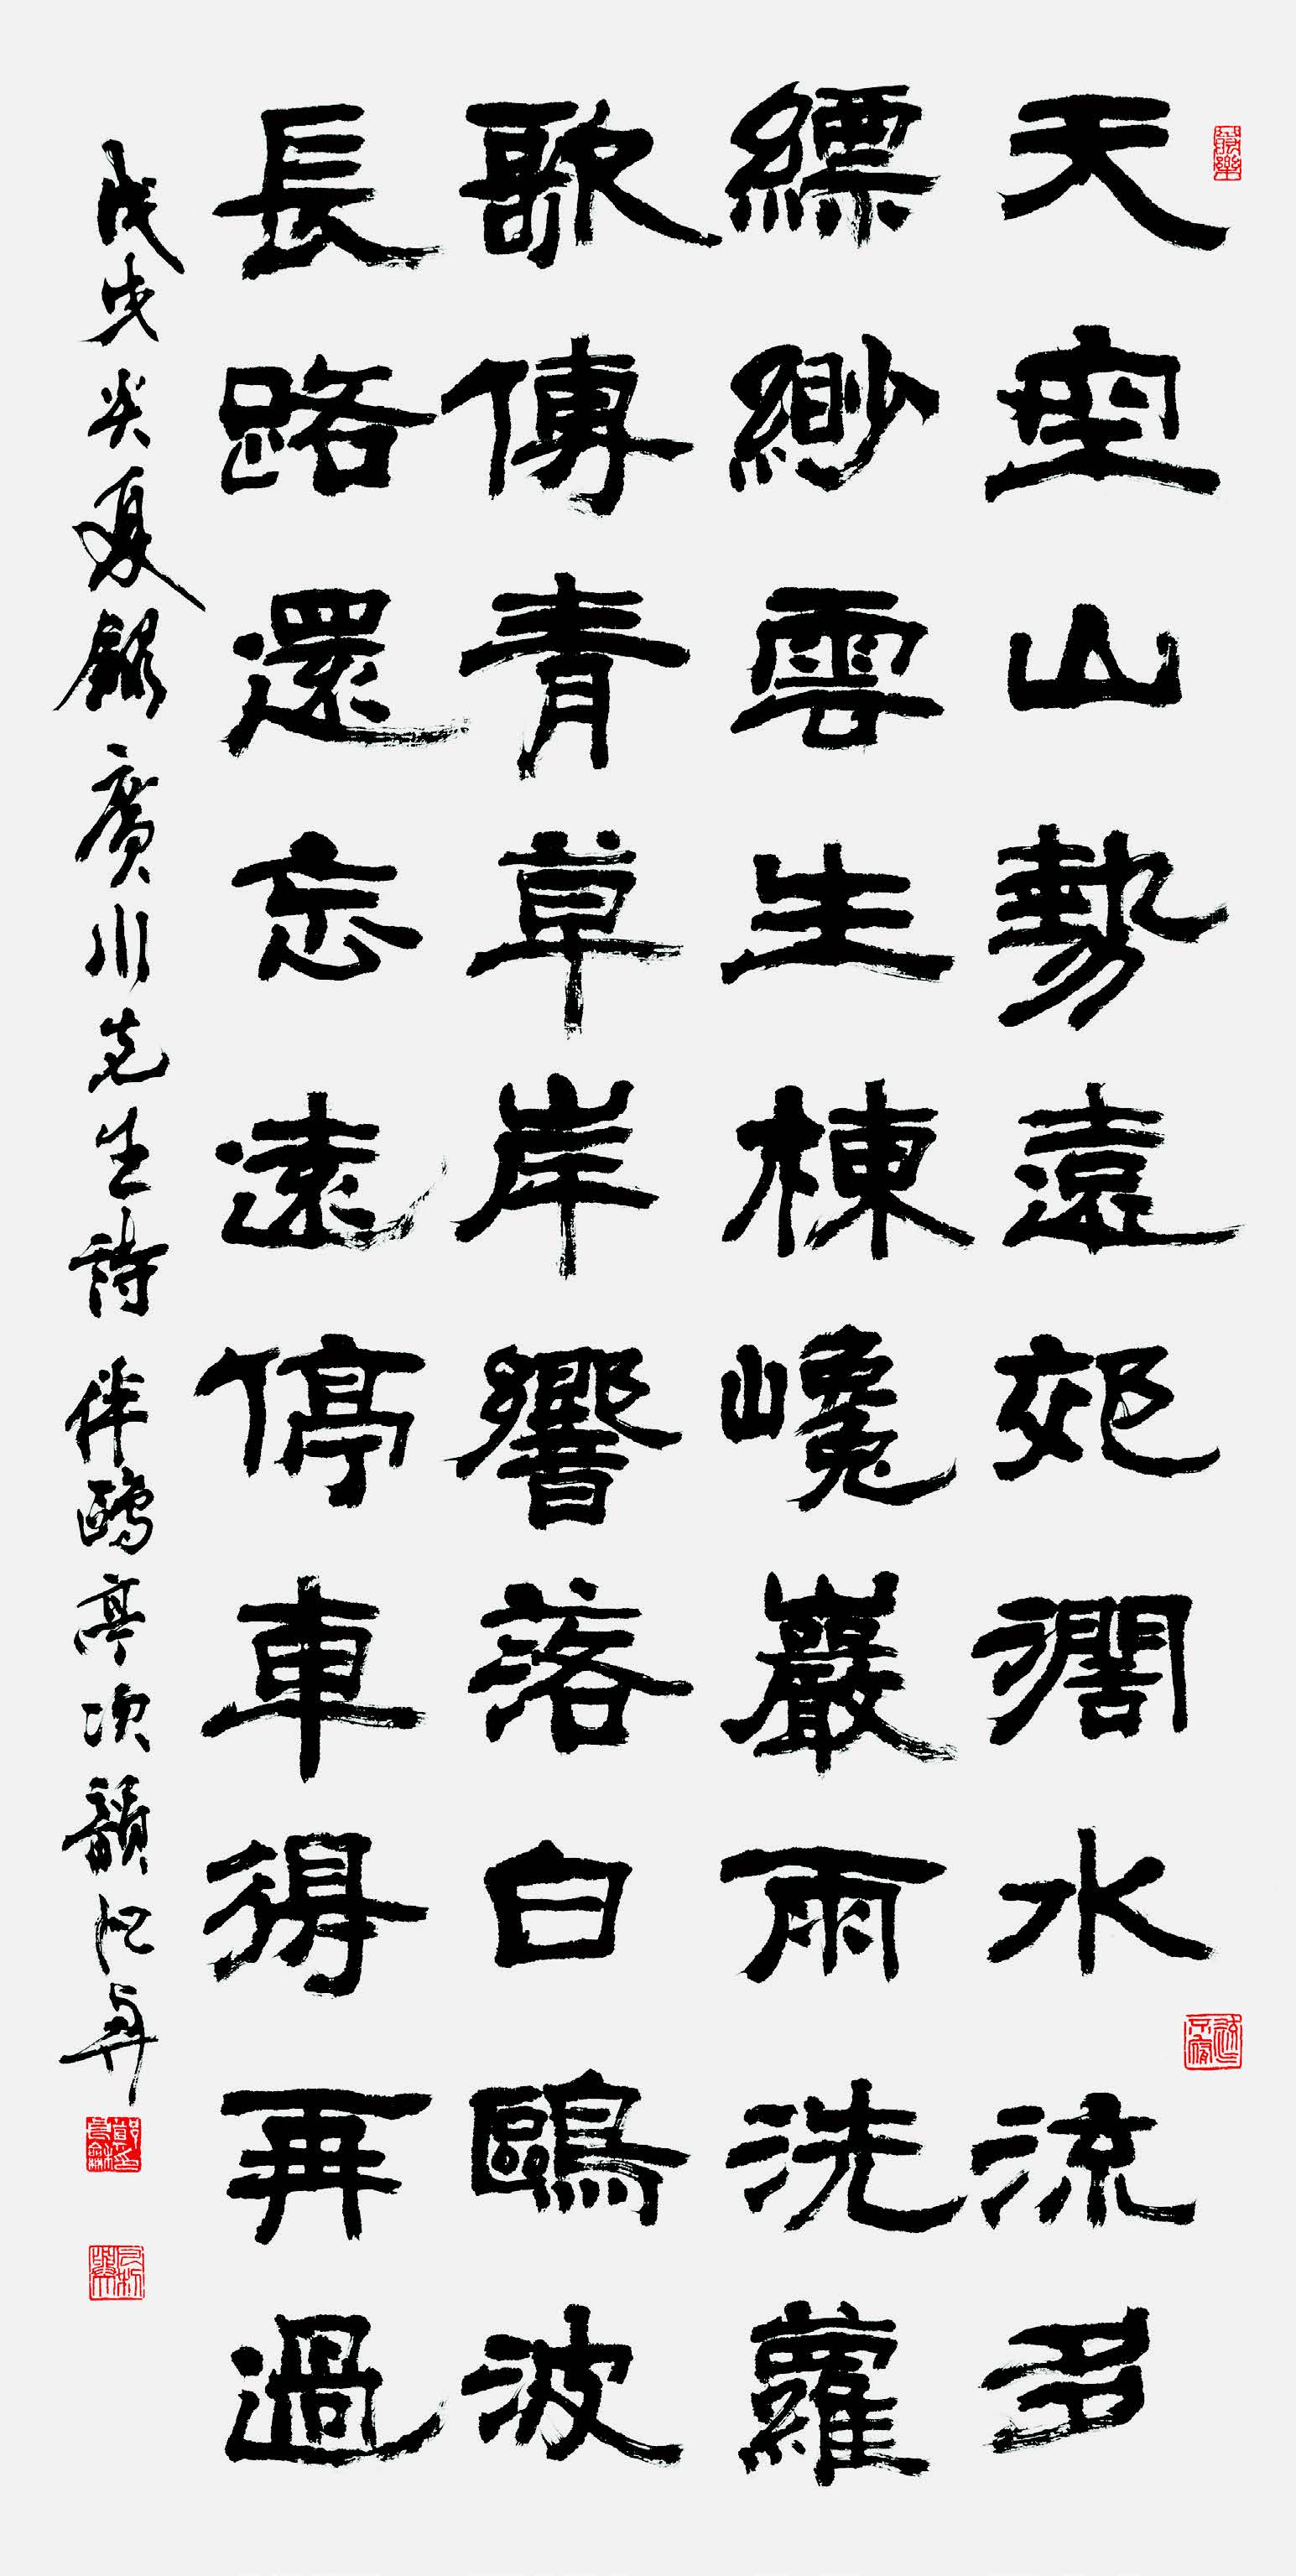 天空山勢遠郊濶水流多
縹緲雲生棟巉巖雨洗蘿
歌傳青草岸響落白鷗波
長路還忘遠停車得再過
戊戌炎夏錄廣川先生詩伴鷗亭次韻